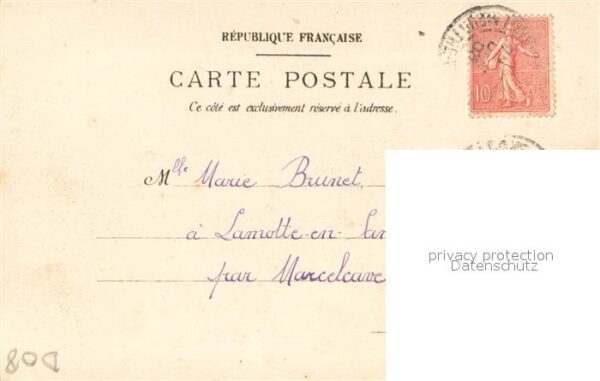 RÉPUBLIQUE FRANÇAISE
CARTE POSTALE
Ce côté est exclusivement réservé à l'adresse.
10
Mlle Marie Brunet
à Lamotte-en-
par Marcelcave
privacy protection
Datenschutz
D08